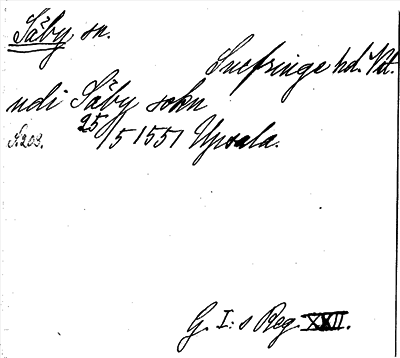 Säby sn.
Snefringe hd. Vst.
udi Säby sokn
N:209. 25/5 1551 Upsala.
G. I:s Reg. XXII.